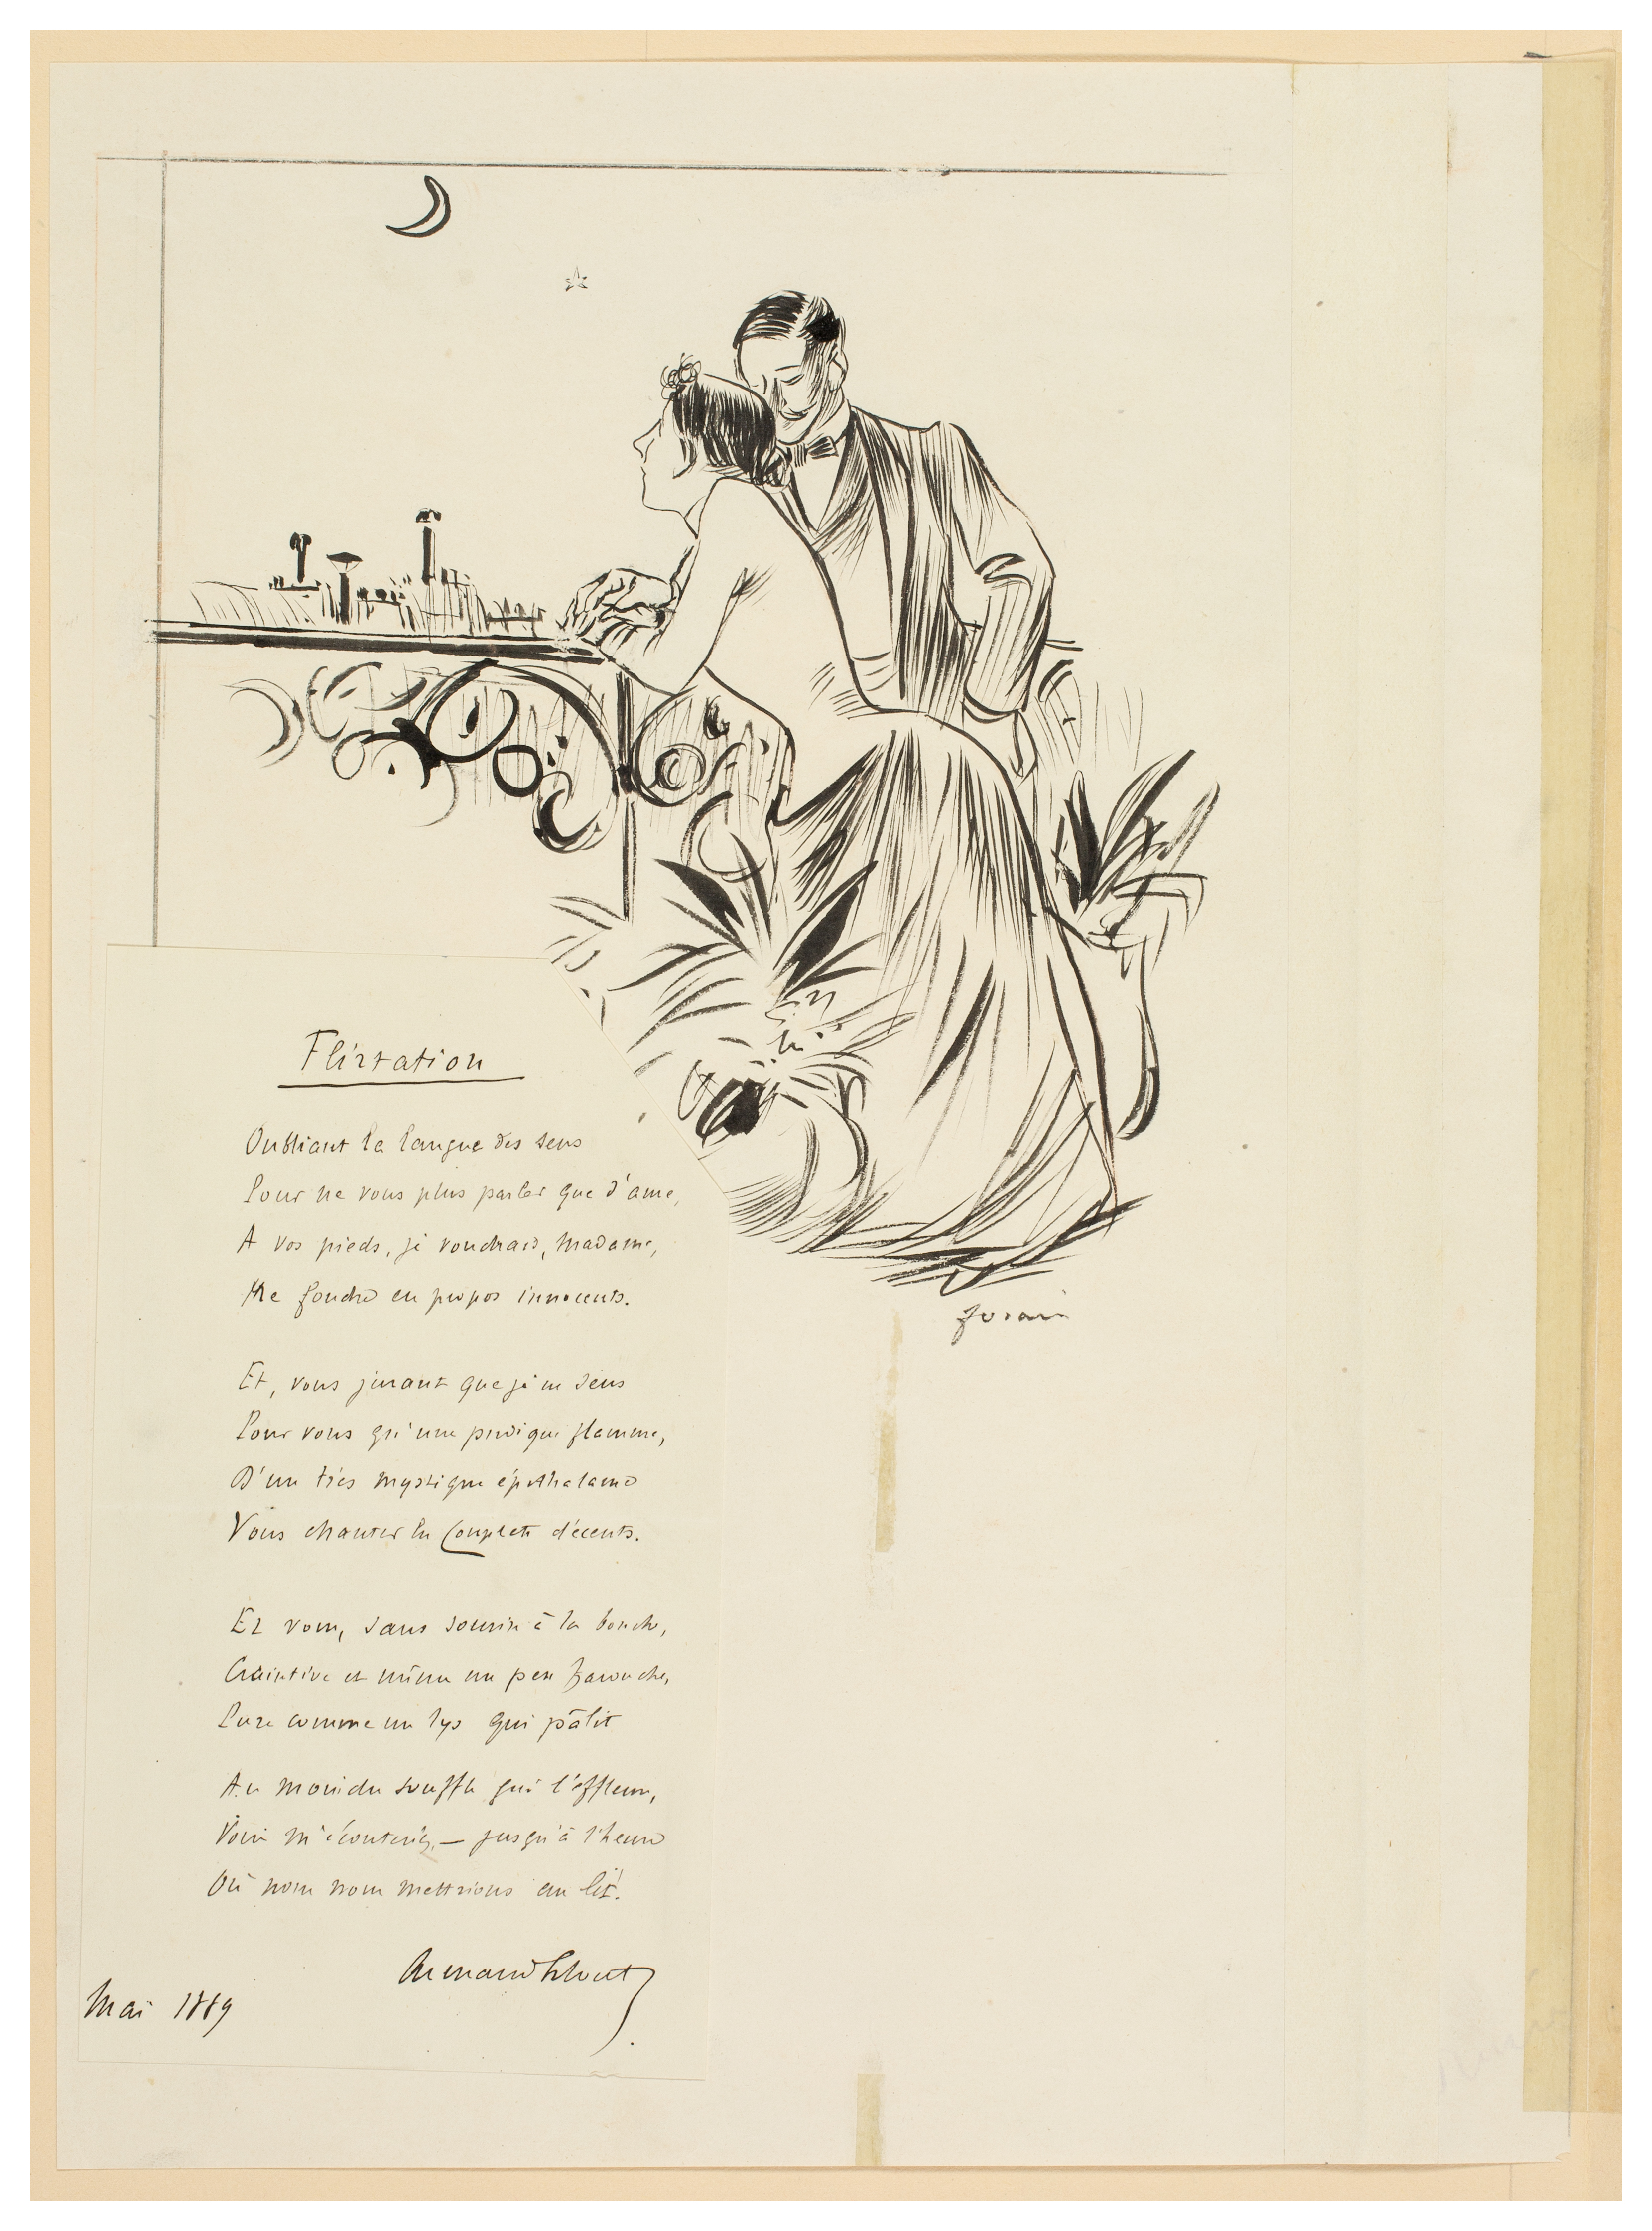 Flirtation
Oubliant la langue des sens
Pour ne vous plus parler que d'ame,
A vos pieds, je voudrais, Madame,
Me fondre en propos innocents.
Et, vous jurant que je ne sens
Pour vous qu'une pudique flamme,
D'un très mystique épithalame
Vous chanter les couplets décents.
Et vous, sans sourire à la bouche,
Craintive et même un peu farouche,
Pure comme un lys qui pâlit
Au moindre souffle qui l'effleure,
Vous m'écouteriez, — jusqu'à l'heure
Où nous nous mettrions au lit.
Armand
Mai 1889
forain